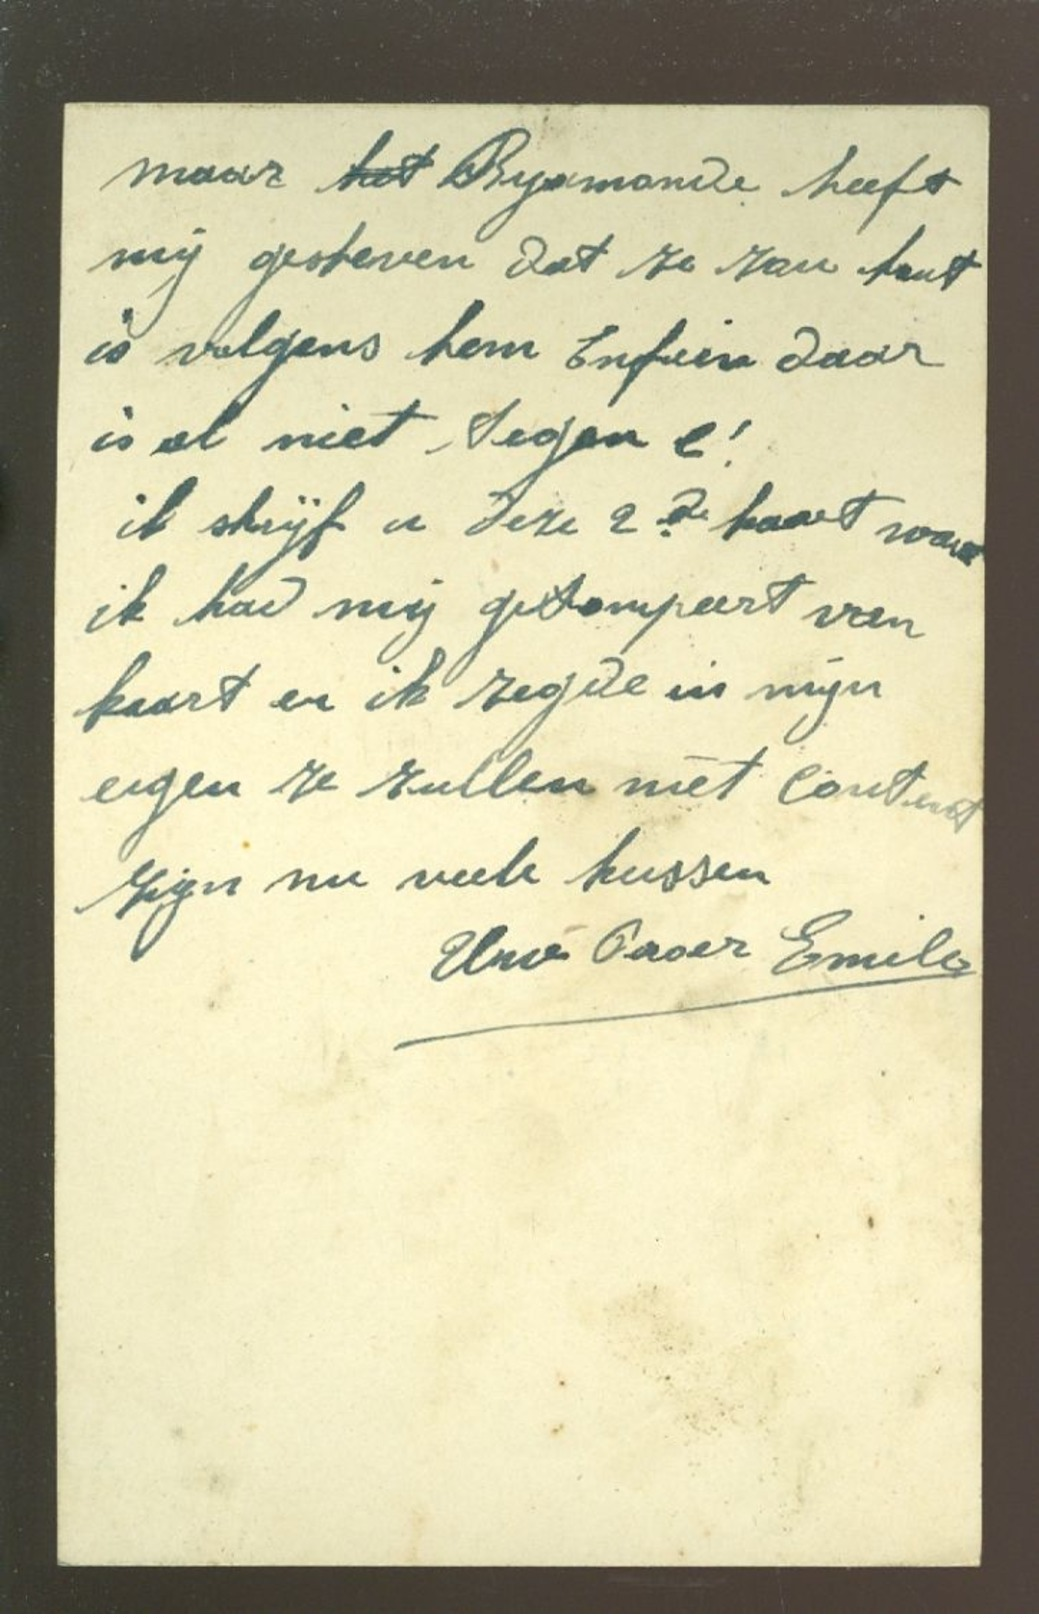 maar het Ryamonde heeft
mij gesteven dat ze zau kaut
is volgens hem Enfein daar
is al niet tegen e!
ik shrijf u deze 2de kaart want
ik had mij getompeert van
kaart en ik zegde in mijn
eigen ze zullen niet Content
zijn nu veele kussen
Uwe Emile